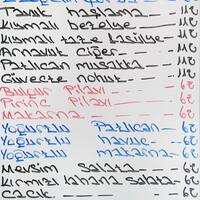 Tavuk haşlama --- 112
Kıymalı bezelye --- 112
Kıymalı taze fasülye --- 112
Arnavut Ciğer --- 112
Patlıcan musakka --- 112
Güvecte nohut --- 112
Bulgur Pilavı --- 62
Pirinç Pilavı --- 62
Makarna --- 62
Yoğurtlu Patlıcan -- 62
Yoğurtlu havuc -- 62
Yoğurtlu makarna -- 62
Mevsim Salata --- 62
Kırmızı lahana salata - 62
Cacık --- 62